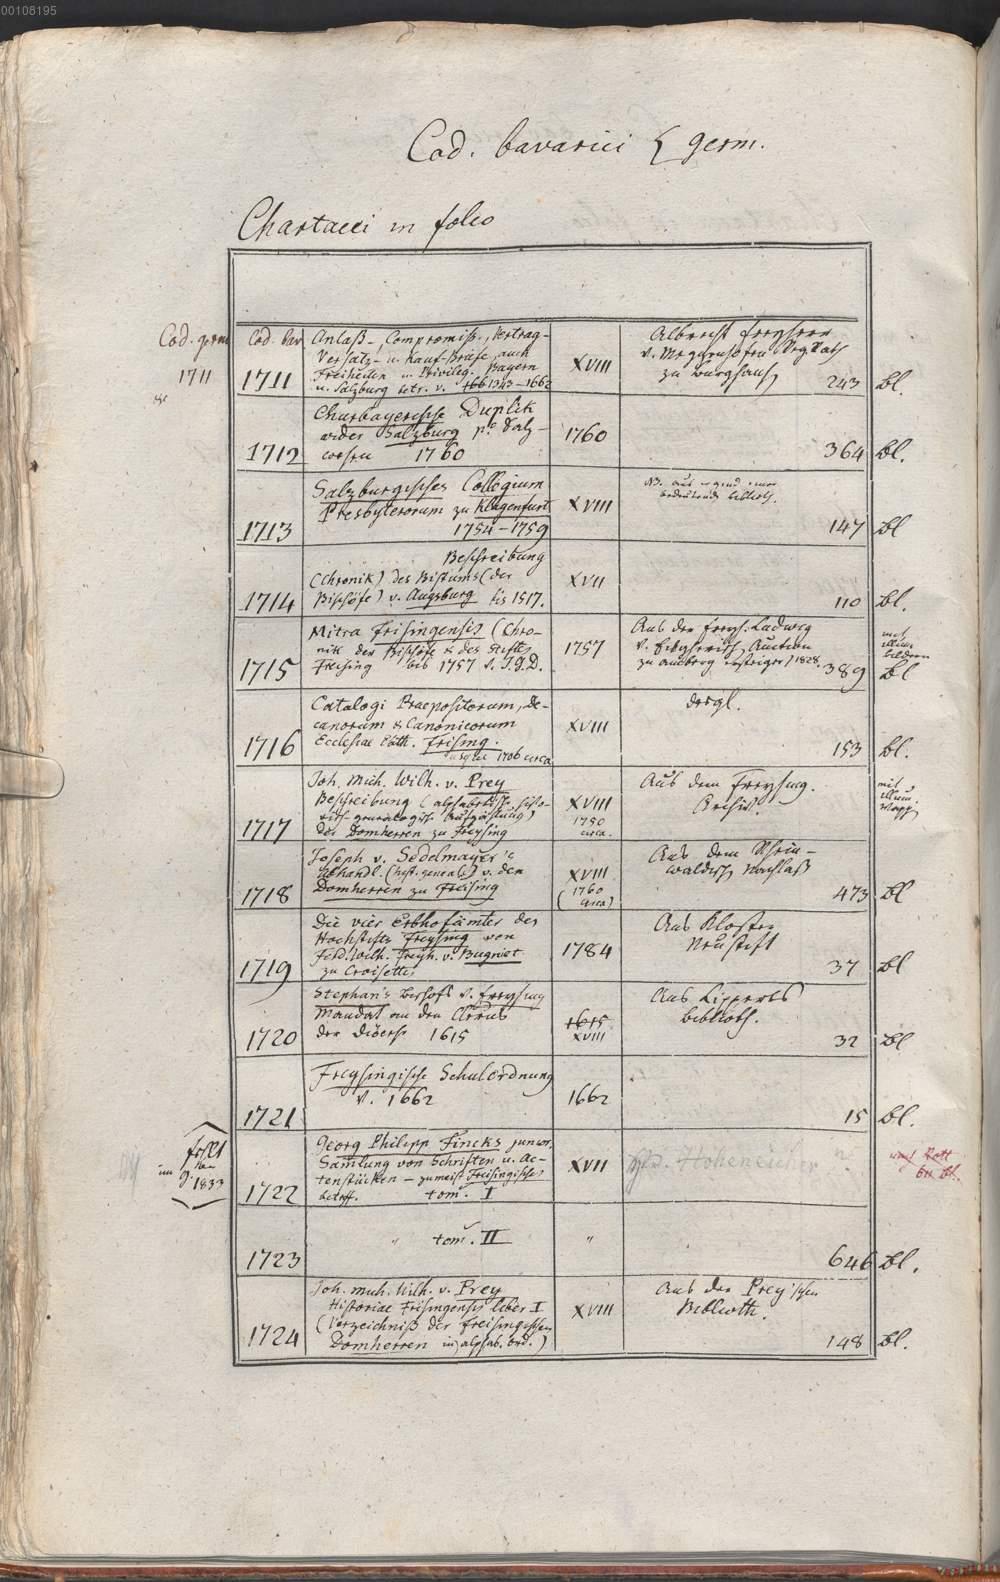 00108195
Cod. bavarici { germ.
Chartacei in folio
Cod. germ
1711
Cod. bav
1711
Anlaß-, Compromiß-, Vertrag-
Versatz- u. Kauf-Briefe, auch
Freiheiten u. Privileg. Bayern
u. Salzburg betr. v. 1343–1662
XVIII
Albrecht Freyherr
zu Burghaus
243 Bl.
1712
Churbayerische Duplik
wider Salzburg pto Salz-
wesen 1760
1760
364 Bl.
1713
Salzburgisches Collegium
Presbyterorum zu Klagenfurt
1754–1759
XVIII
147 Bl
1714
Beschreibung
(Chronik) des Bistums (der
Bischöfe) v. Augsburg bis 1517.
XVII
110 Bl.
1715
Mitra Frisingensis (Chro-
nik der Bischöfe u. des Stifts
Freising bis 1757 v. J.G.D.
1757
Aus der Freyh. Ludwig
Auction
zu Amberg ersteigert 1828.
389 Bl
mit
illum
bildern
1716
Catalogi Praepositorum, De-
canorum & Canonicorum
Ecclesiae Cath. Frising.
usque 1706 circa
XVIII
dergl.
153 Bl.
1717
Joh. Mich. Wilh. v. Prey
Beschreibung (alphabetisch histo-
risch genealogisch Aufzählung)
der Domherren zu Freysing
XVIII
1750
circa.
Aus dem Freysing.
Archiv.
mit
illum.
Wapp.
1718
Joseph v. Sedelmayer's
Abhandl. (hist. geneal.) v. den
Domherren zu Freising
XVIII
(1760
circa)
Aus dem Rhein-
waldisch Nachlaß
473 Bl
1719
Die vier Erbhofämter des
Hochstifts Freysing von
Ferd. Wilh. Freyh. v. Bugniet
zu Croisettes
1784
Aus Kloster
Neustift
37 Bl
1720
Stephan's Bischofs v. Freysing
Mandat an den Clerus
der Diöcese 1615
1615
XVIII
Aus Lipperts
Biblioth.
32 Bl
1721
Freysingische Schulordnung
v. 1662
1662
15 Bl.
fehlt
im
J. 1833
1722
Georg Philipp Fincks junior,
Samlung von Schriften u. Ac-
tenstücken – zumeist Freisingisches
betreff. tom. I
XVII
Hoheneicher
1723
" tom. II
"
646 Bl.
1724
Joh. Mich. Wilh. v. Prey
Historiae Frisingensis liber I
(Verzeichniß der freisingischen
Domherren in alphab. Ord.)
XVIII
Aus der Prey'schen
Biblioth.
148 Bl.